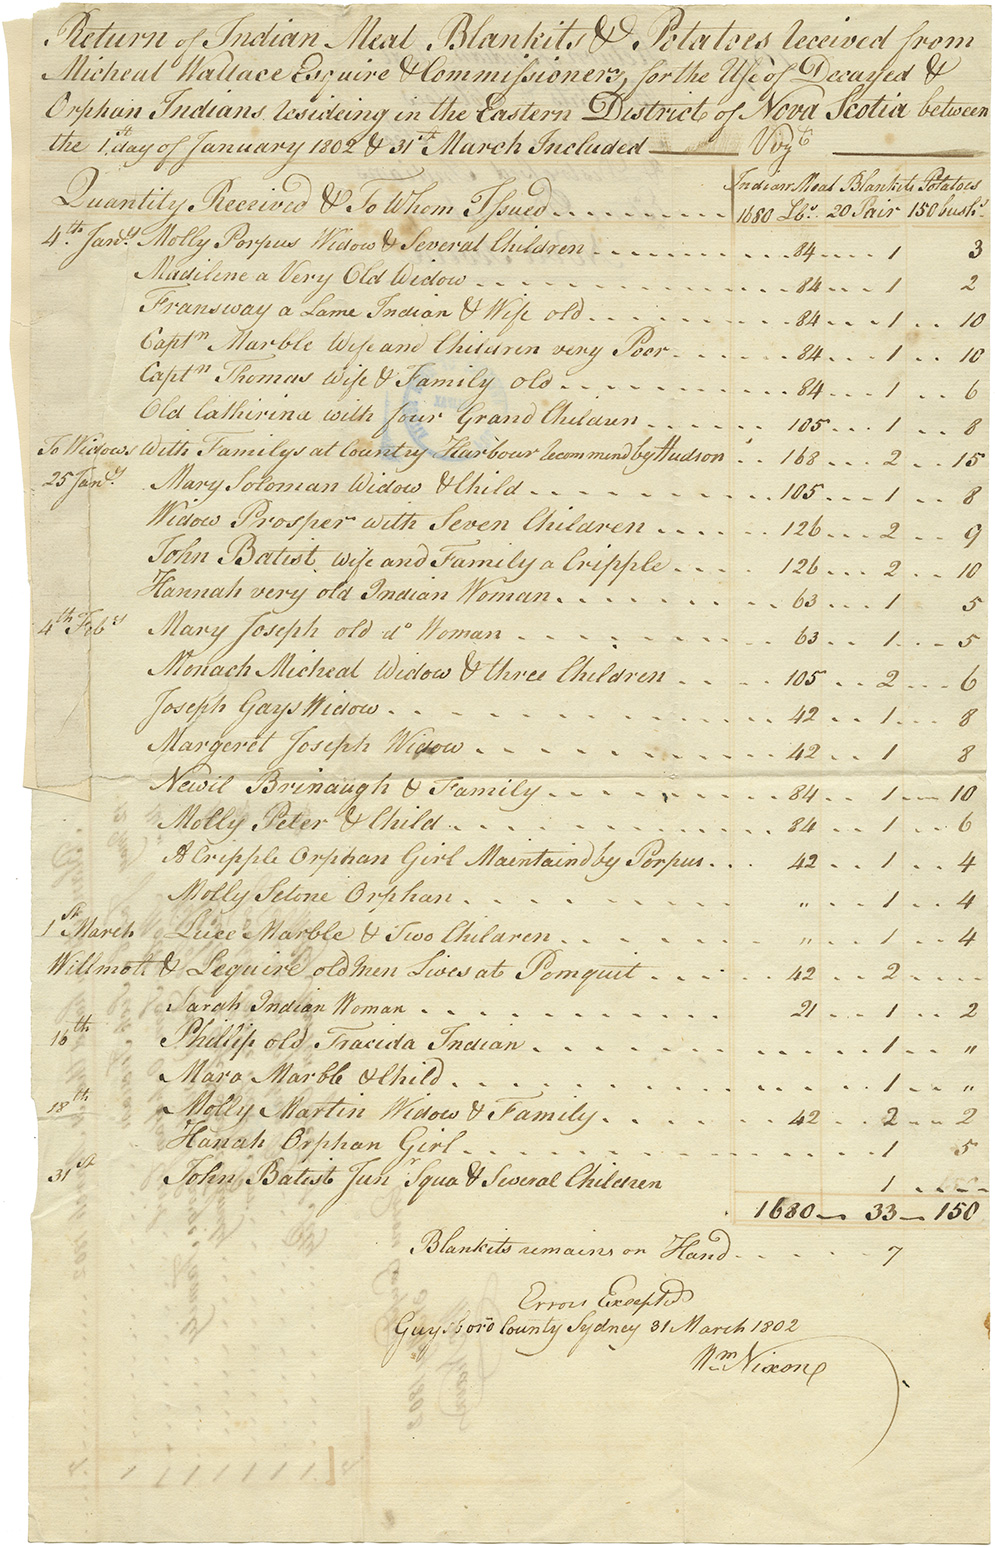 Return of Indian Meal Blankits & Potatoes received from
Micheal Wallace Esquire & Commissioners, for the Use of Decayed &
Orphan Indians resideing in the Eastern District of Nova Scotia between
the 1st day of January 1802 & 31st March Included Vizt
Indian Meal Blankits Potatoes
Quantity Received & To Whom Issued 1680 Lbs. 20 Pair 150 bushs
4th Jany Molly Porpus Widow & Several Children 84 1 3
Madilene a Very Old Widow 84 1 2
Fransway a Lame Indian & Wife old 84 1 10
Captn Marble Wife and Children very Poor 84 1 10
Captn Thomas wife & Family old 84 1 6
Old Cathirina with four Grand Children 105 1 8
To Widows With Familys at Country Harbour recommend by Hudson 168 2 15
25 Jany Mary Soloman Widow & Child 105 1 8
Widow Prosper with Seven Children 126 2 9
John Batist wife and Family a Cripple 126 2 10
Hannah very old Indian Woman 63 1 5
4th Feby Mary Joseph old do Woman 63 1 5
Monach Micheal Widow & three Children 105 2 6
Joseph Gays Widow 42 1 8
Margeret Joseph Widow 42 1 8
Newil Brinaugh & Family 84 1 10
Molly Peter & Child 84 1 6
A Cripple Orphan Girl Maintaind by Porpus 42 1 4
Molly Setone Orphan " 1 4
1st March Luce Marble & Two Children " 1 4
Willmott & Lequire old men Lives at Pomquit 42 2
Sarah Indian Woman 21 1 2
16th Philip old Tracida Indian 1 "
Mara Marble & Child 1 "
18th Molly Martin Widow & Family 42 2 2
Hanah Orphan Girl 1 5
31st John Batist Junr Squa & Several Children 1
1680 33 150
Blankits remains on Hand 7
Errors Excepted
Guysboro County Sydney 31 March 1802
Wm Nixon